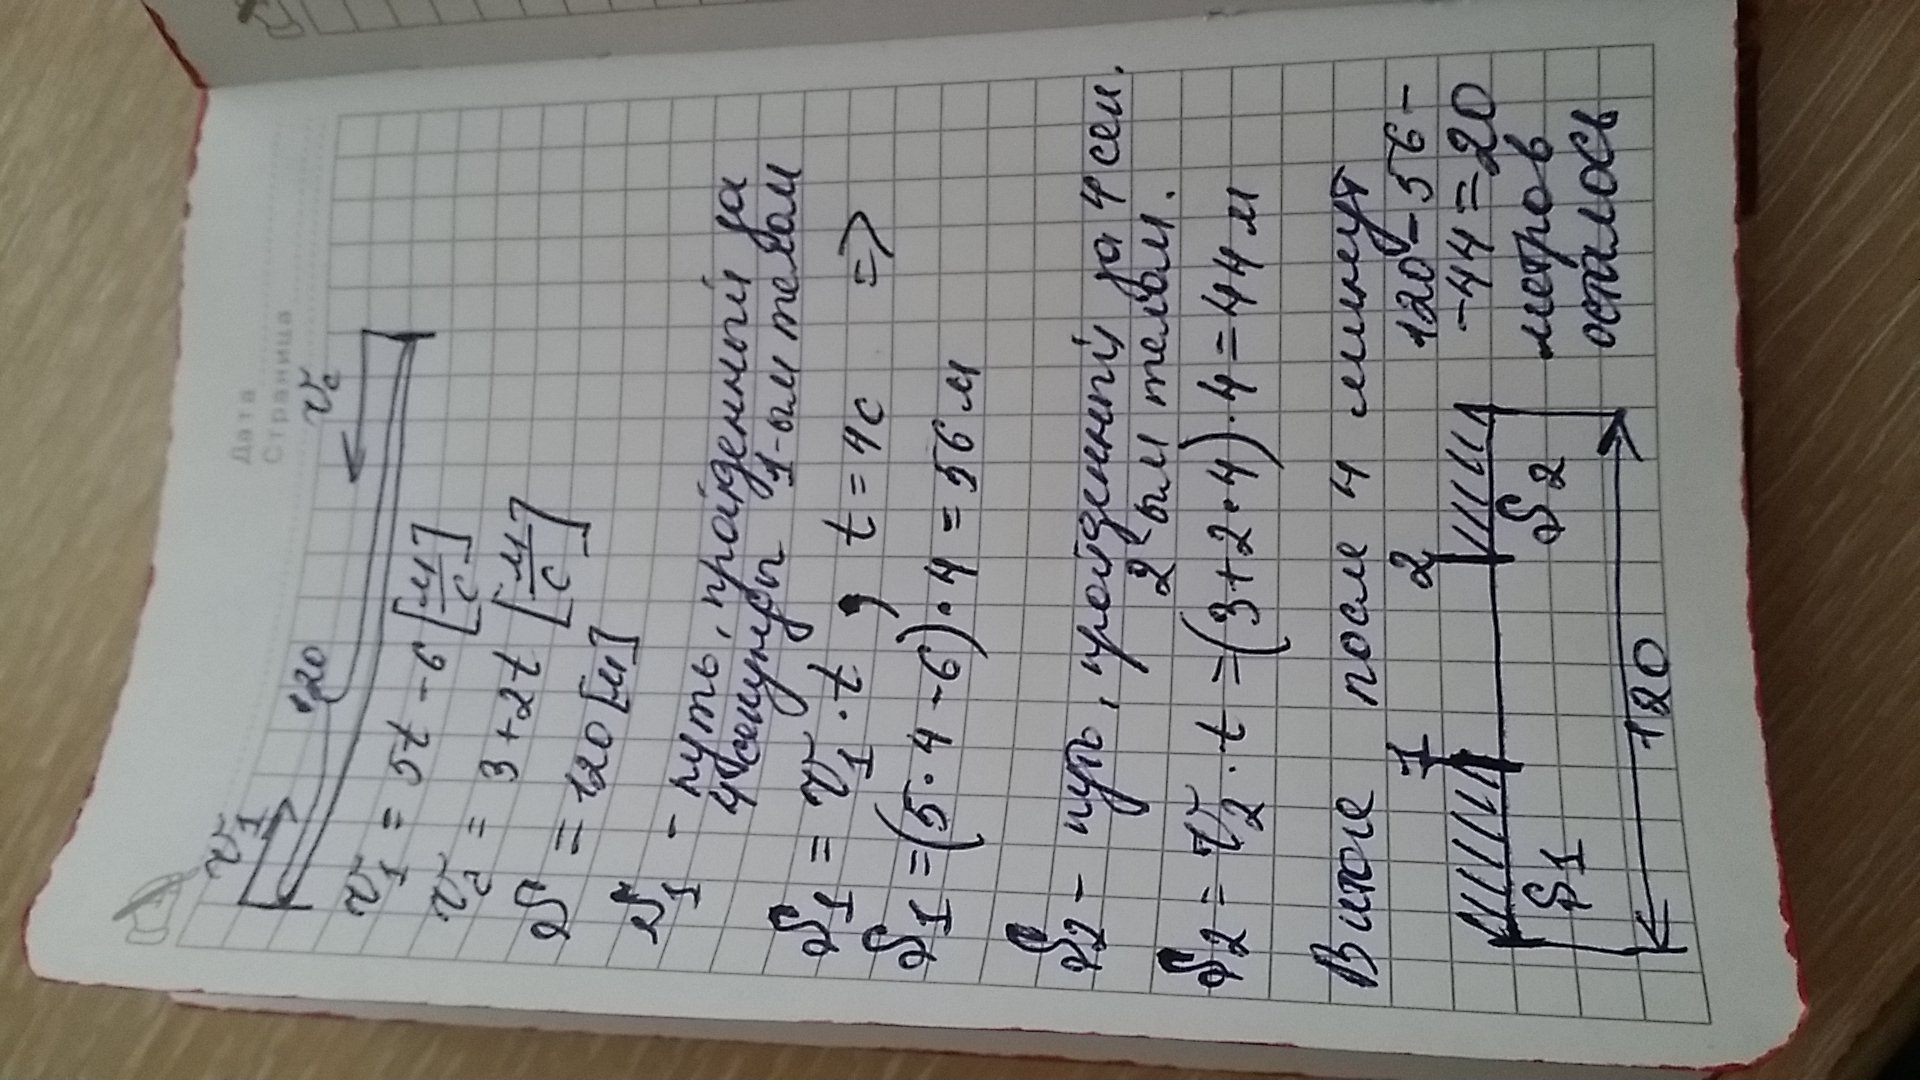 Дата
Страница
v1
120
v2
v1 = 5t - 6 [м/с]
v2 = 3 + 2t [м/с]
S = 120 [м]
S1 - путь, пройденный за
4 секунды 1-ым телом
S1 = v1 · t , t = 4с =>
S1 = (5 · 4 - 6) · 4 = 56 м
S2 - путь, пройденный за 4 сек.
2 ым телом.
S2 = v2 · t = (3 + 2 · 4) · 4 = 44 м
В итоге после 4 минут
1 2
120 - 56 -
- 44 = 20
метров
осталось
S1 S2
120